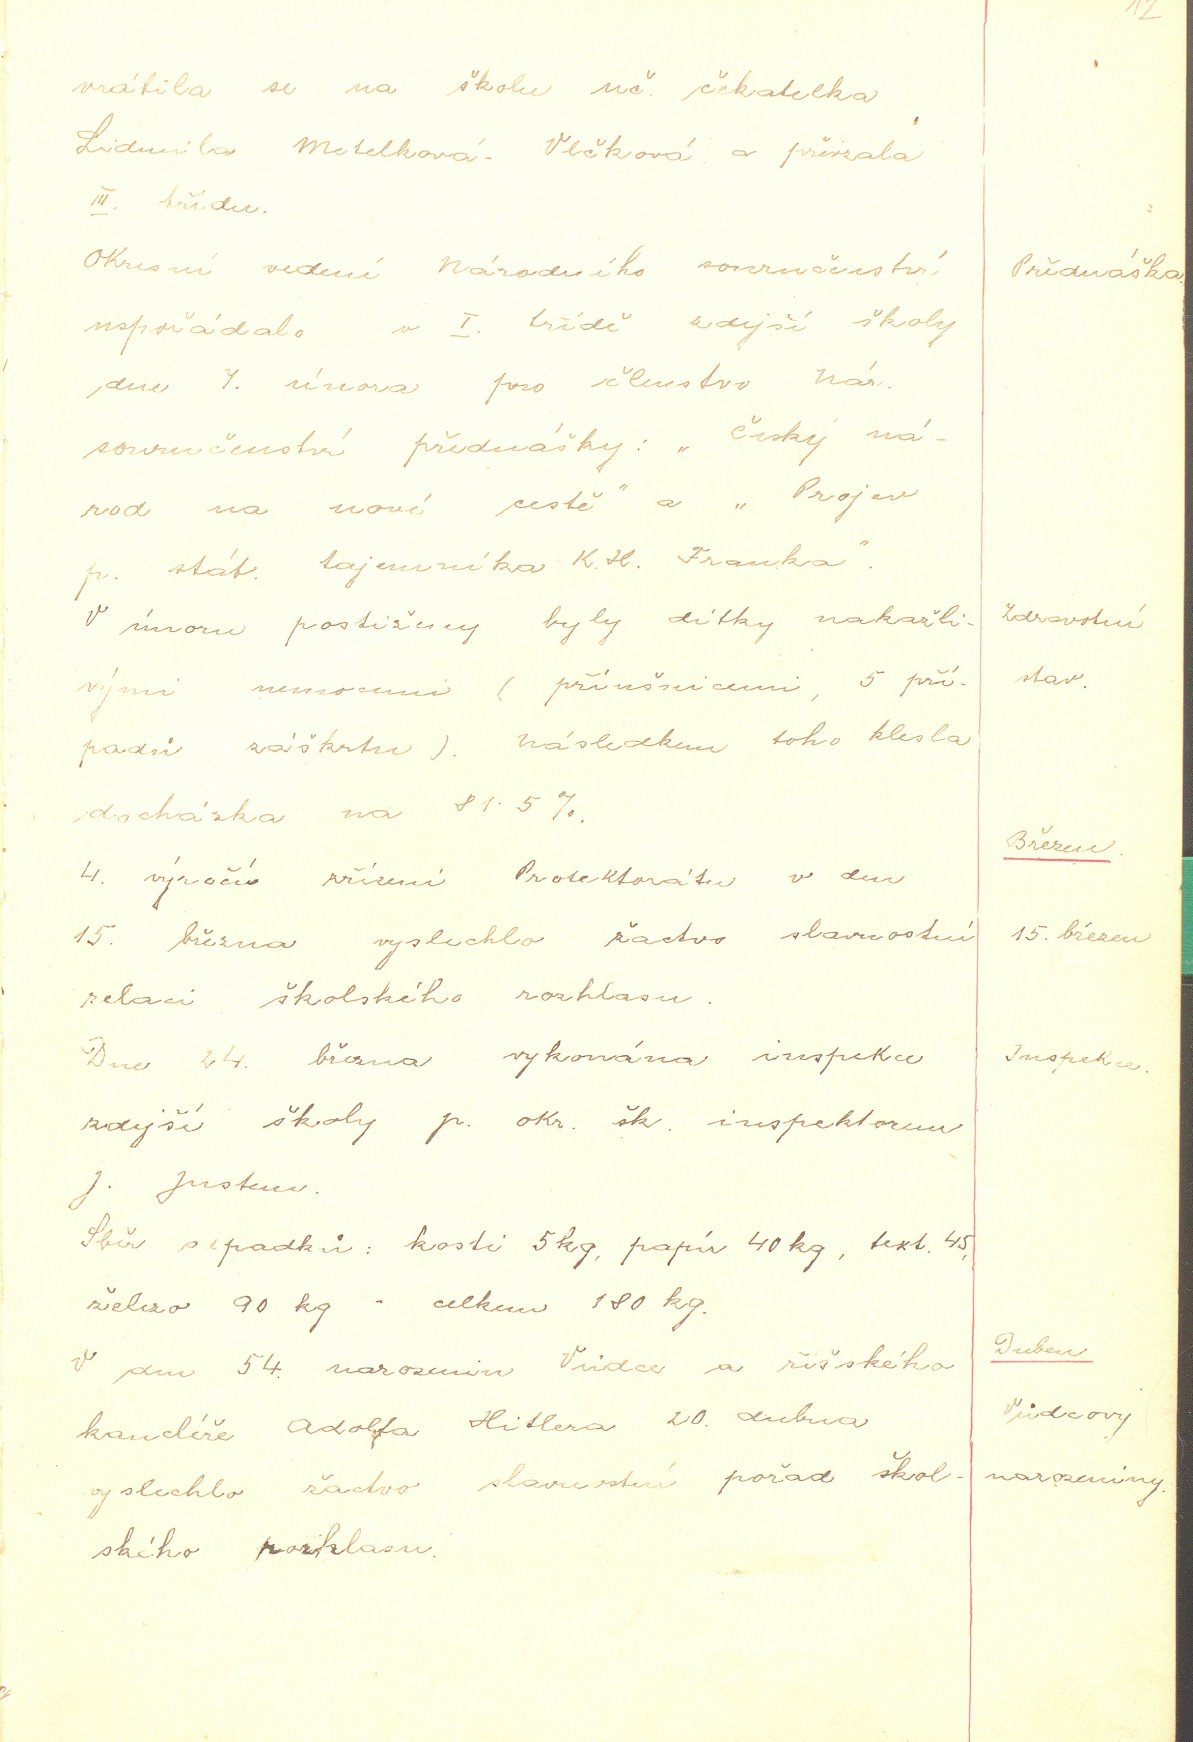 12
vrátila se na školu uč. čekatelka
Lidmila Metelková-Vlčková a převzala
III. třídu.
Okresní vedení Národního souručenství
Přednáška.
uspořádalo v I. třídě zdejší školy
dne 7. února pro členstvo Nár.
souručenství přednášky: „Český ná-
rod na nové cestě" a „Projev
p. stát. tajemníka K. H. Franka".
V únoru postiženy byly dítky nakažli-
Zdravotní
vými nemocemi (příušnicemi, 5 pří-
stav.
padů záškrtu). Následkem toho klesla
docházka na 81·5%.
Březen.
4. výročí zřízení Protektorátu v den
15. března vyslechlo žactvo slavnostní
15. březen
relaci školského rozhlasu.
Dne 24. března vykonána inspekce
Inspekce.
zdejší školy p. okr. šk. inspektorem
J. Justem.
Sběr odpadků: kosti 5 kg, papír 40 kg, text. 45,
železo 90 kg - celkem 180 kg.
Duben
V den 54. narozenin Vůdce a říšského
kancléře Adolfa Hitlera 20. dubna
Vůdcovy
vyslechlo žactvo slavnostní pořad škol-
narozeniny.
ského rozhlasu.